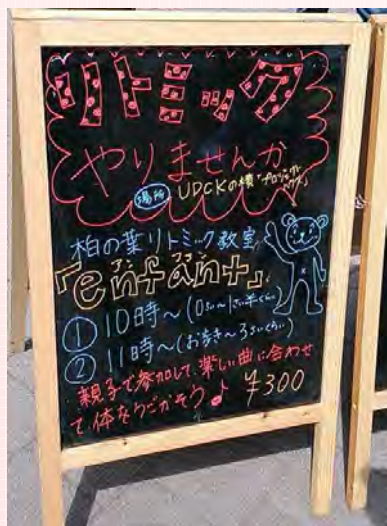 リトミック
やりませんか
場所 UDCKの横「プロジェクトハウス」
柏の葉リトミック教室
アンファン
「enfant」
① 10時~(0さい~1さい半くらい)
② 11時~(お歩き~3さいくらい)
親子で参加して、楽しい曲に合わせ
て体をうごかそう♪ ¥300